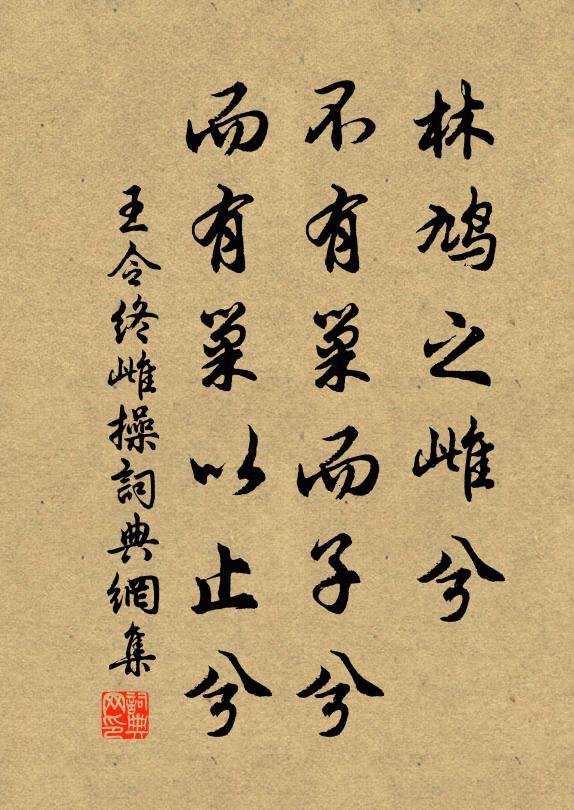 林鳩之雌兮
不有巢而子兮
而有巢以止兮
王令終雌操詞典網集
詞典网印